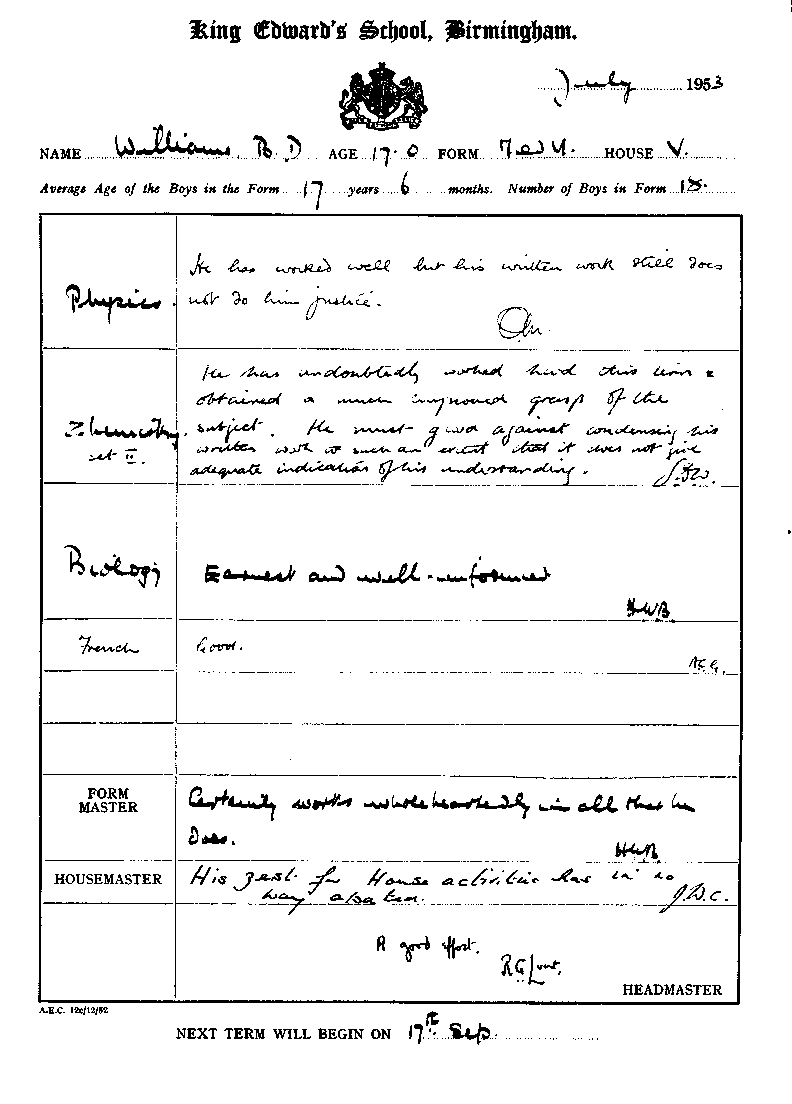 King Edward's School, Birmingham.
July 1953
NAME Williams B. D AGE 17.0 FORM HOUSE V.
Average Age of the Boys in the Form 17 years 6 months. Number of Boys in Form 18.
Physics.
He has worked well but his written work still does
not do him justice.
Chemistry.
set II.
He has undoubtedly worked hard this term &
obtained a much improved grasp of the
subject. He must guard against condensing his
written work to such an extent that it does not give
adequate indication of his understanding.
Biology
Earnest and well-informed
HWB
French
Good.
FORM
MASTER
Certainly works wholeheartedly in all that he
does.
HWB
HOUSEMASTER
His zest for House activities has in no
way abated.
J.D.C.
A good effort.
HEADMASTER
A.E.C. 12c/12/52
NEXT TERM WILL BEGIN ON 17th Sep.